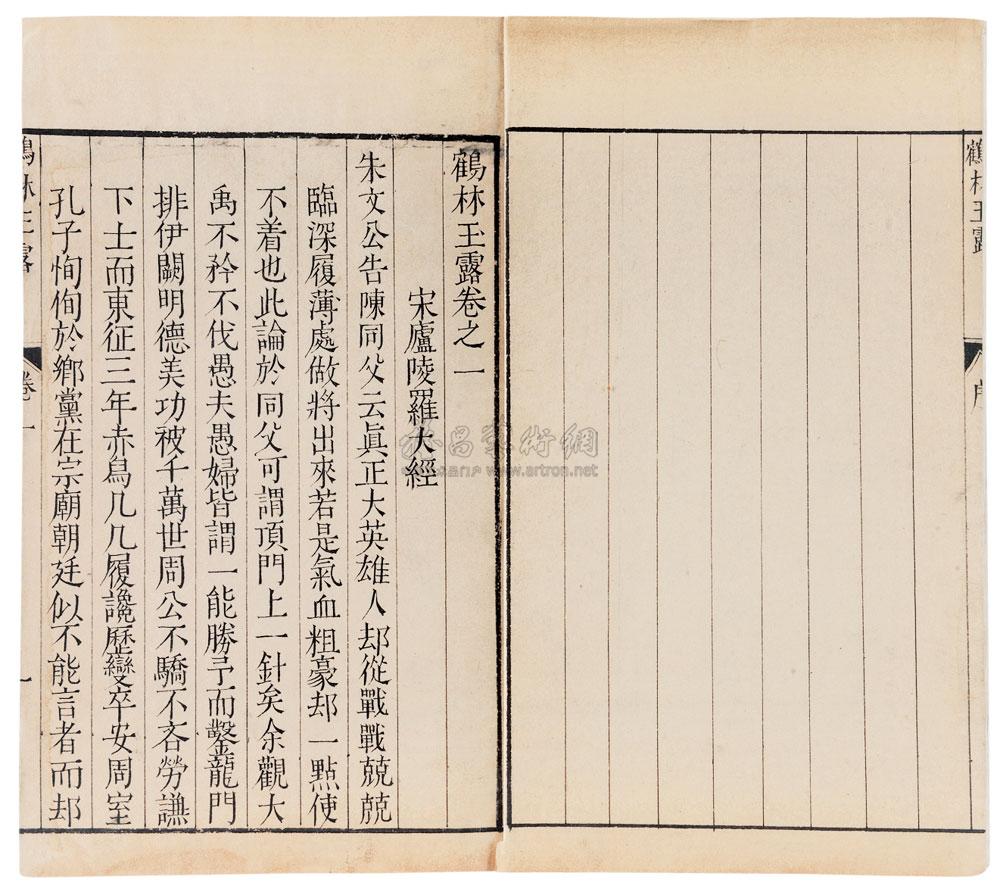 鶴林玉露
序
鶴林玉露卷之一
宋廬陵羅大經
朱文公告陳同父云眞正大英雄人却從戰戰兢兢
臨深履薄處做將出來若是氣血粗豪却一點使
不着也此論於同父可謂頂門上一針矣余觀大
禹不矜不伐愚夫愚婦皆謂一能勝予而鑿龍門
排伊闕明德美功被千萬世周公不驕不吝勞謙
下士而東征三年赤舄几几履讒歷變卒安周室
孔子恂恂於鄉黨在宗廟朝廷似不能言者而却
鶴林玉露
卷一
www.artron.net